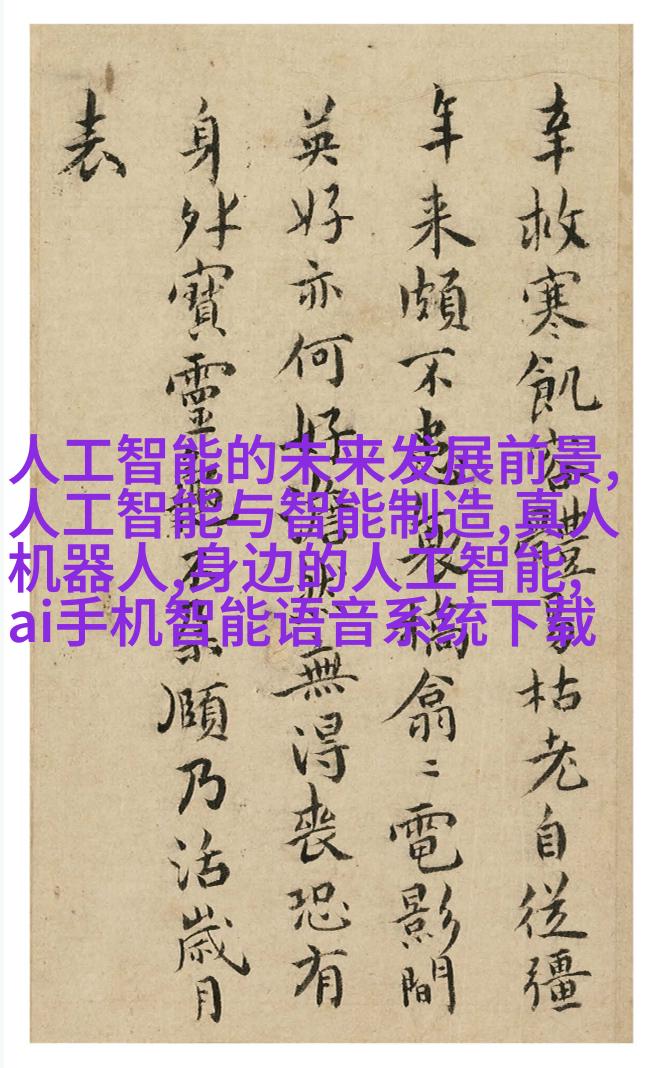 人工智能的未来发展前景,
人工智能与智能制造,真人
机器人,身边的人工智能,
ai手机智能语音系统下载
幸救寒飢體枯老自從彊
年来頗不稿翕〻電影間
英好亦何好無得喪恐有
身外寶靈龜不朵頤乃活歲月
表